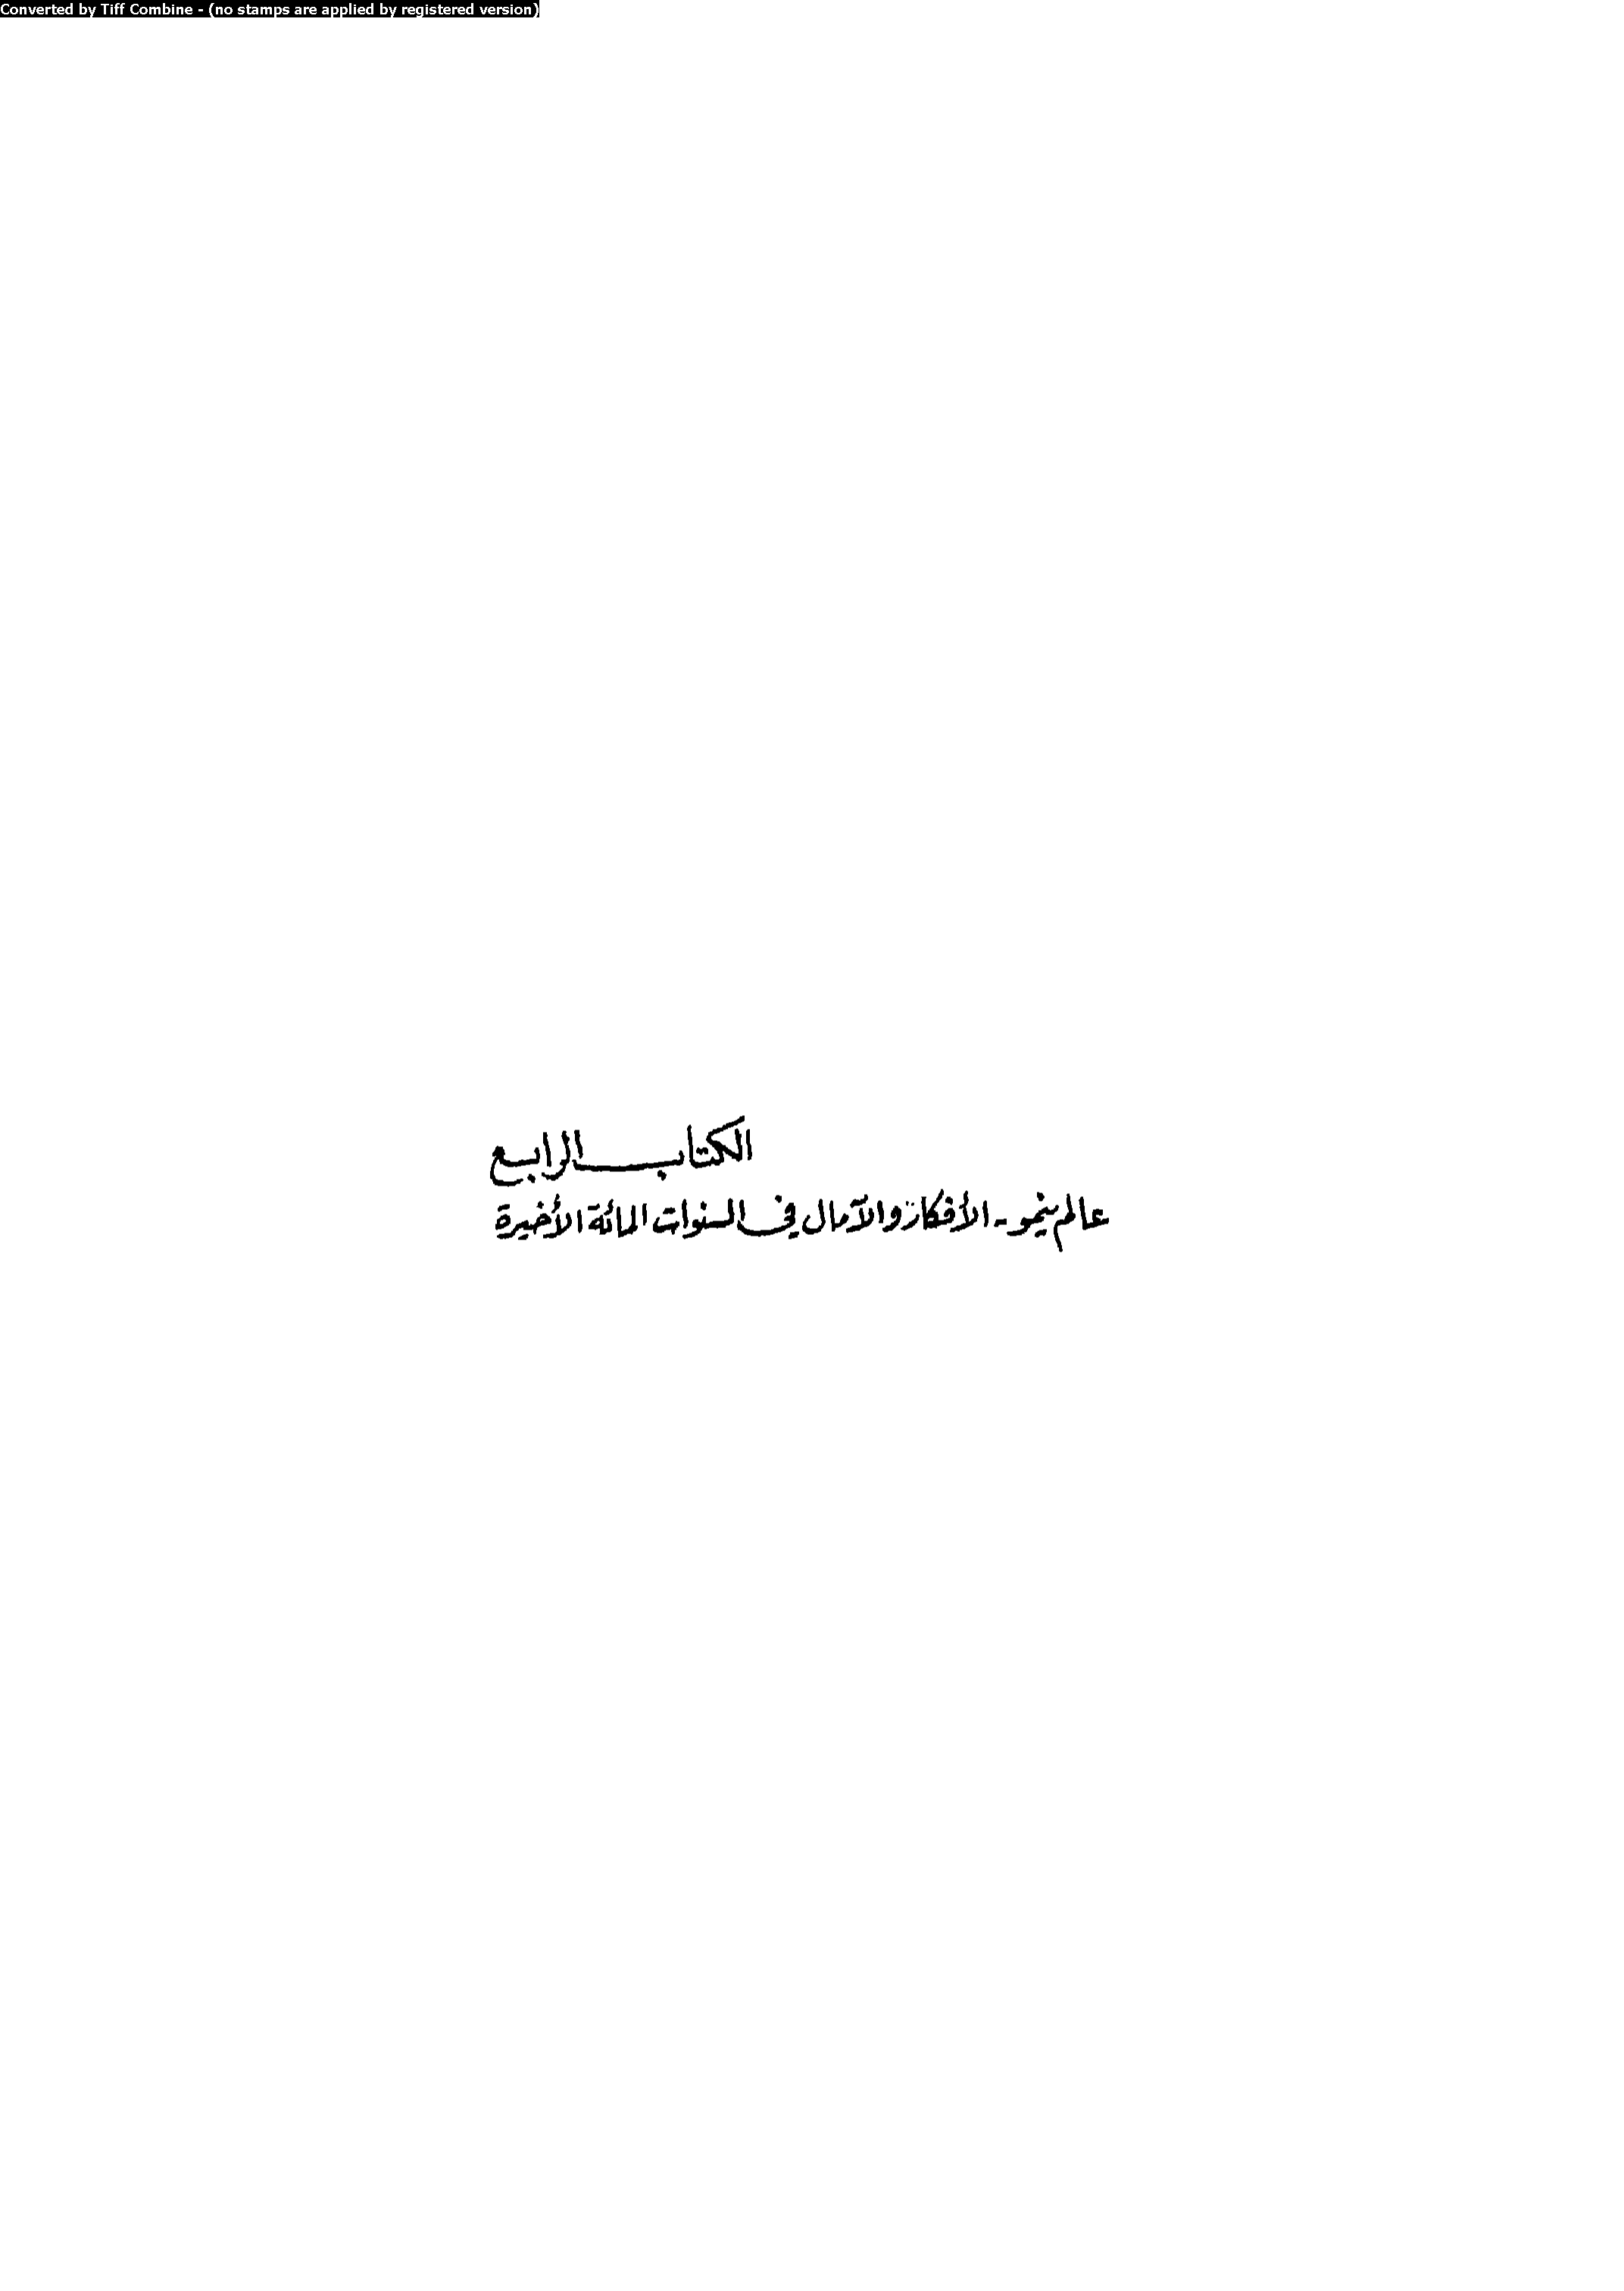 Converted by Tiff Combine - (no stamps are applied by registered version)
الكتاب الرابع
عالم ينمو - الأفكار والآمال في السنوات المائة الأخيرة